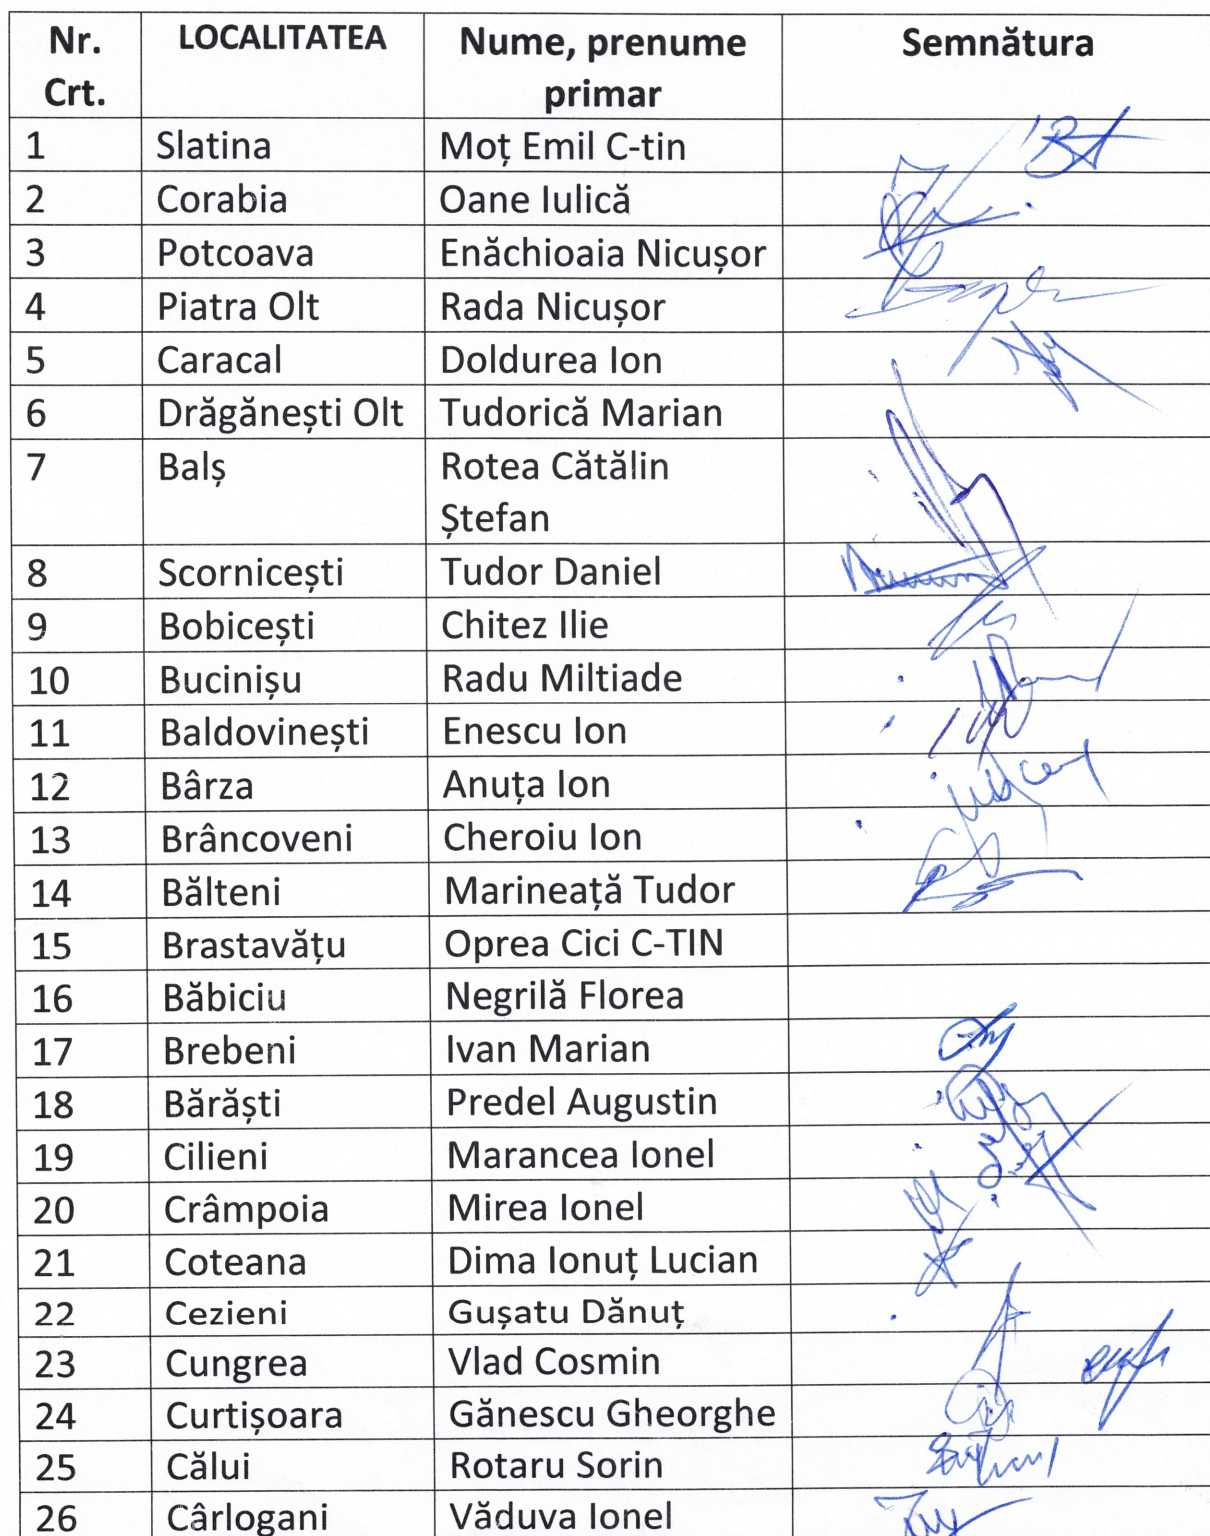 Nr. Crt. LOCALITATEA Nume, prenume primar Semnătura
1 Slatina Moț Emil C-tin
2 Corabia Oane Iulică
3 Potcoava Enăchioaia Nicușor
4 Piatra Olt Rada Nicușor
5 Caracal Doldurea Ion
6 Drăgănești Olt Tudorică Marian
7 Balș Rotea Cătălin Ștefan
8 Scornicești Tudor Daniel
9 Bobicești Chitez Ilie
10 Bucinișu Radu Miltiade
11 Baldovinești Enescu Ion
12 Bârza Anuța Ion
13 Brâncoveni Cheroiu Ion
14 Bălteni Marineață Tudor
15 Brastavățu Oprea Cici C-TIN
16 Băbiciu Negrilă Florea
17 Brebeni Ivan Marian
18 Bărăști Predel Augustin
19 Cilieni Marancea Ionel
20 Crâmpoia Mirea Ionel
21 Coteana Dima Ionuț Lucian
22 Cezieni Gușatu Dănuț
23 Cungrea Vlad Cosmin
24 Curtișoara Gănescu Gheorghe
25 Călui Rotaru Sorin
26 Cârlogani Văduva Ionel